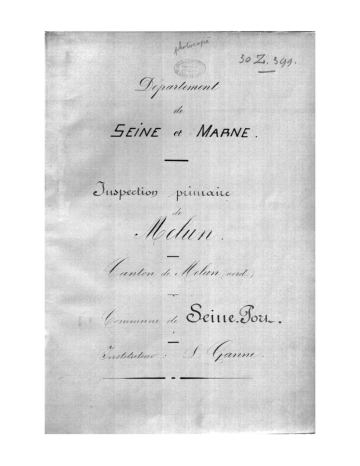 photocopie
30 Z. 399.
Département
de
SEINE et MARNE.
Inspection primaire
de
Melun.
Canton de Melun (nord.)
Commune de Seine-Port.
Instituteur : S. Ganne.